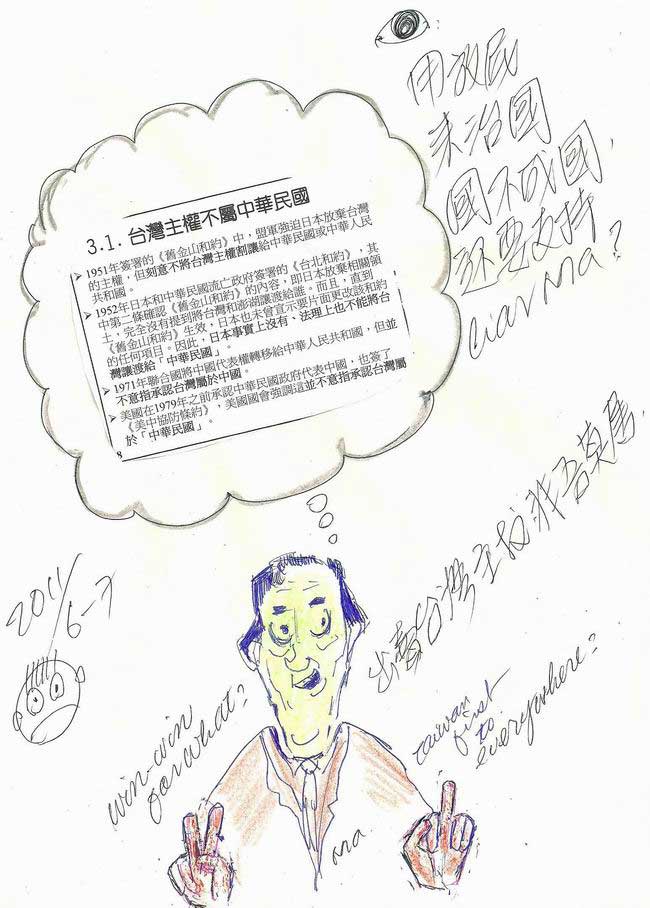 3.1. 台灣主權不屬中華民國
➤ 1951年簽署的《舊金山和約》中，盟軍強迫日本放棄台灣
的主權，但刻意不將台灣主權割讓給中華民國或中華人民
共和國。
➤ 1952年日本和中華民國流亡政府簽署的《台北和約》，其
中第二條確認《舊金山和約》的內容，即日本放棄相關領
土，完全沒有提到將台灣和澎湖讓渡給誰。而且，直到
《舊金山和約》生效，日本也未曾宣示要片面更改該和約
的任何項目。因此，日本事實上沒有、法理上也不能將台
灣讓渡給「中華民國」。
➤ 1971年聯合國將中國代表權轉移給中華人民共和國，但並
不意指承認台灣屬於中國。
➤ 美國在1979年之前承認中華民國政府代表中國，也簽了
《美中協防條約》，美國國會強調這並不意指承認台灣屬
於「中華民國」。
8
民
來治國
國不成國,
还要支持
Liar Ma?
出賣台灣主权非吾莫属.
2011/6-7
win-win
for what?
taiwan
first
to
everywhere?
Ma